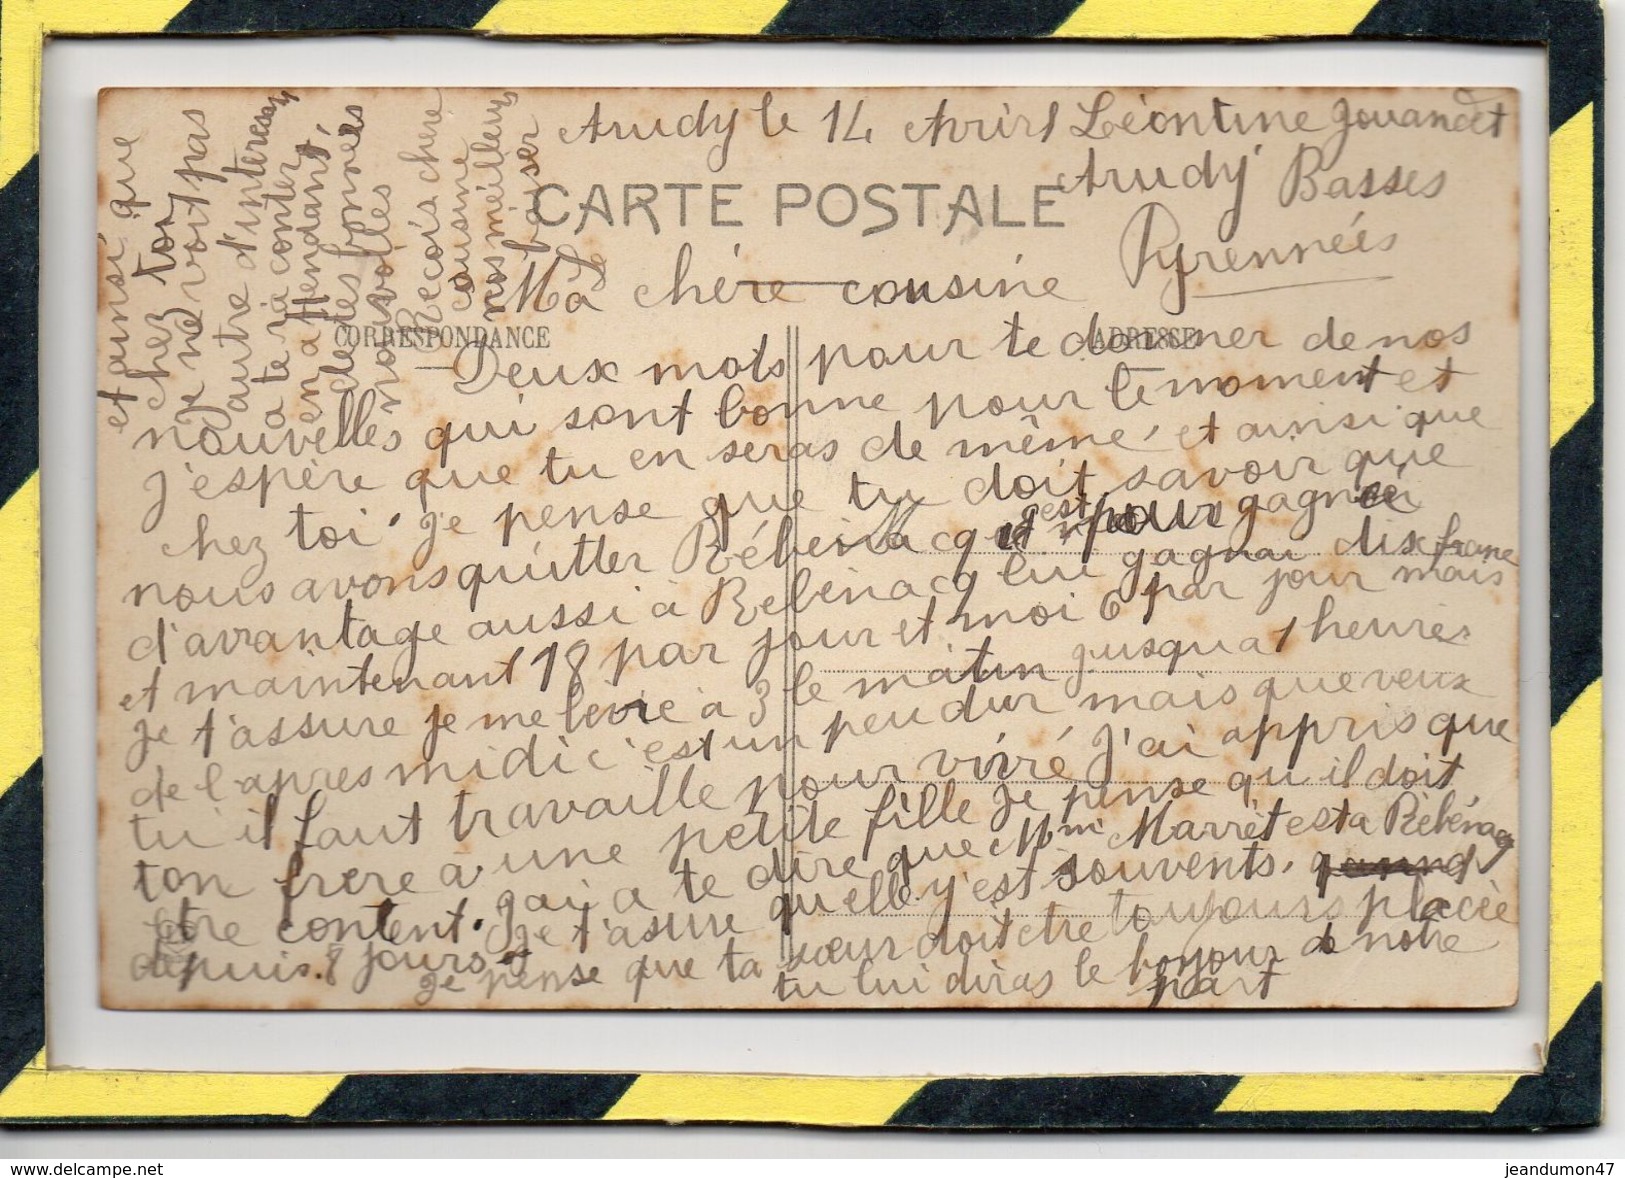 Arudy le 14 Avril Léontine Jouandet
Arudy Basses
Pyrennéés
CARTE POSTALE
Ma chére cousine
CORRESPONDANCE
ADRESSE
Deux mots pour te donner de nos
nouvelles qui sont bonne pour le moment et
j'espère que tu en seras de même et ainsi que
chez toi je pense que tu doit savoir que
nous avons quitter Rébénacq c'est pour gagner
d'avantage aussi à Rebénacq lui gagnai dix franc
et maintenant 18 par jour et moi 6 par jour mais
je t'assure je me lève à 3 le matin jusqua 1 heures
de l'apres midi c'est un peu dur mais que veux
tu il faut travaille pour vivré J'ai appris que
ton frere à une petite fille Je pense qu'il doit
etre content. j'ai a te dire que Mme Marrèt est a Rébénacq
depuis 8 jours Je t'assure quelle y'est souvents.
je pense que ta sœur doit etre toujours placée
tu lui diras le bonjour de notre
part
et ainsi que
chez toi
Je ne voit pas
autre d'interessant
a te raconter
en attendant,
de tes bonnes
nouvelles
Recois chere
cousine
nos meilleurs
baiser
L
jeandumon47